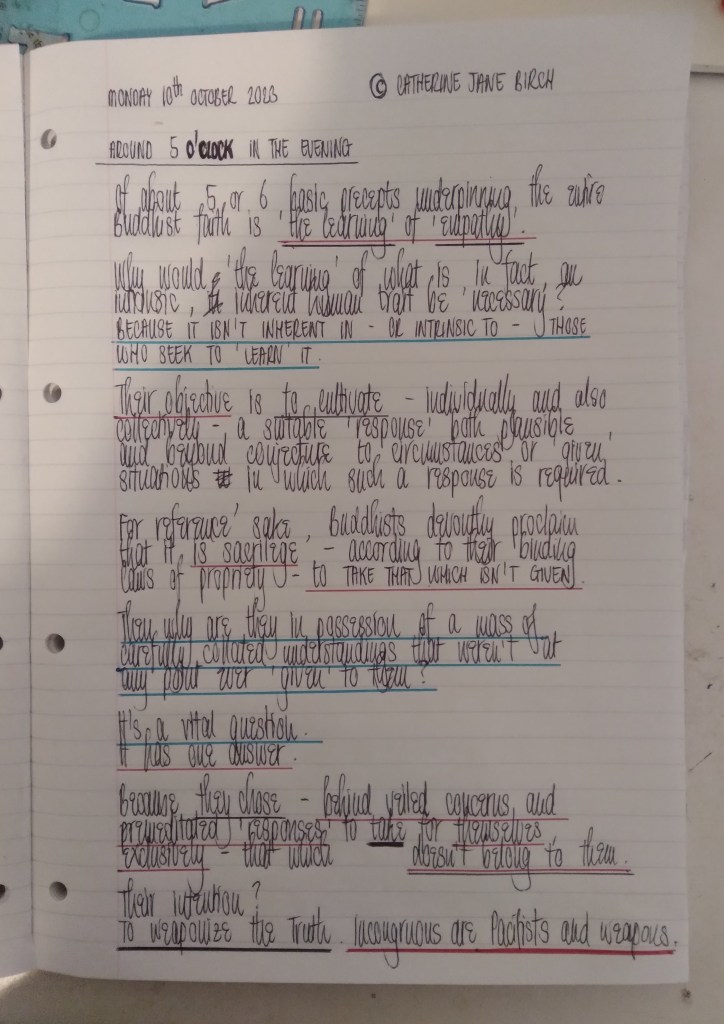 MONDAY 10th OCTOBER 2023
© CATHERINE JANE BIRCH
AROUND 5 O'CLOCK IN THE EVENING
Of about 5 or 6 basic precepts underpinning the entire
Buddhist faith is 'the learning' of 'empathy'.
Why would 'the learning' of what is in fact, an
intrinsic, inherent human trait be 'necessary'?
BECAUSE IT ISN'T INHERENT IN - OR INTRINSIC TO - THOSE
WHO SEEK TO 'LEARN' IT.
Their objective is to cultivate - individually and also
collectively - a suitable 'response' both plausible
and beyond conjecture to circumstances or 'given'
situations in which such a response is required.
For reference' sake, Buddhists devoutly proclaim
that it is sacrilege - according to their binding
laws of propriety - to TAKE THAT WHICH ISN'T GIVEN.
Then why are they in possession of a mass of
carefully collated understandings that weren't at
any point ever 'given' to them?
It's a vital question.
It has one answer.
Because they chose - behind veiled concerns and
premeditated 'responses' to take for themselves
exclusively - that which doesn't belong to them.
Their intention?
To weaponize the Truth. Incongruous are Pacifists and weapons.